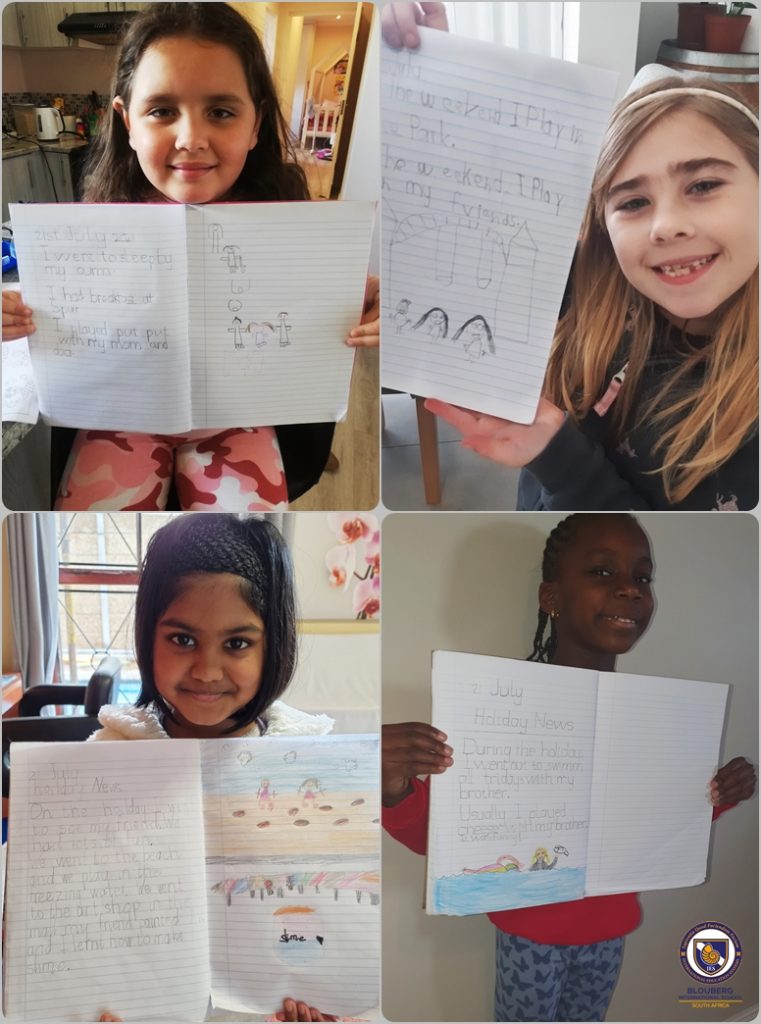 21st July
I went to sleep by
my ouma
I had breakfast at
Spur
I played put put
with my mom and
dad.
the weekend I Play in
e Park.
the weekend I Play
my friends.
21 July
holiday News
On the holiday I
to see my friend. We
had lots of fun.
we went to the beach
and we play in the
freezing water. We went
to the art shop in
my friend painted
and I lernt how to make
slime.
slime
21 July
Holiday News
During the holiday
I went out to swimm
all fridays with my
brother.
Usually I played
with my brother.
IES
BLOUBERG
INTERNATIONAL SCHOOL
SOUTH AFRICA